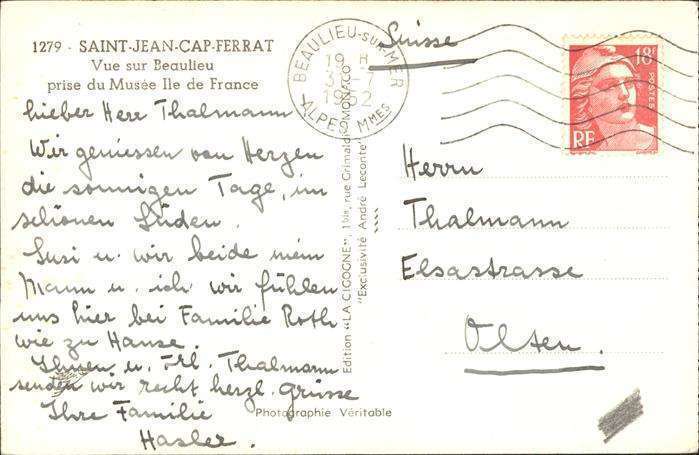 1279 - SAINT-JEAN-CAP-FERRAT
Vue sur Beaulieu
prise du Musée Ile de France
lieber Herr Thalmann
Wir geniessen von Herzen
die sonnigen Tage, im
schönen Süden.
Susi u. wir beide mein
Mann u. ich wir fühlen
uns hier bei Familie Roth
wie zu Hause.
Ihnen u. Frl. Thalmann
senden wir recht herzl. Grüsse
Ihre Familie
Hasler.
Photographie Véritable
Edition "LA CIGOGNE", 1 bis, rue Grimaldi, MONACO
"Exclusivité André Leconte"
BEAULIEU-SUR-MER
19 H
1952
ALPES MMES
Suisse
18F
POSTES
RF
Herrn
Thalmann
Elsastrasse
Olten.